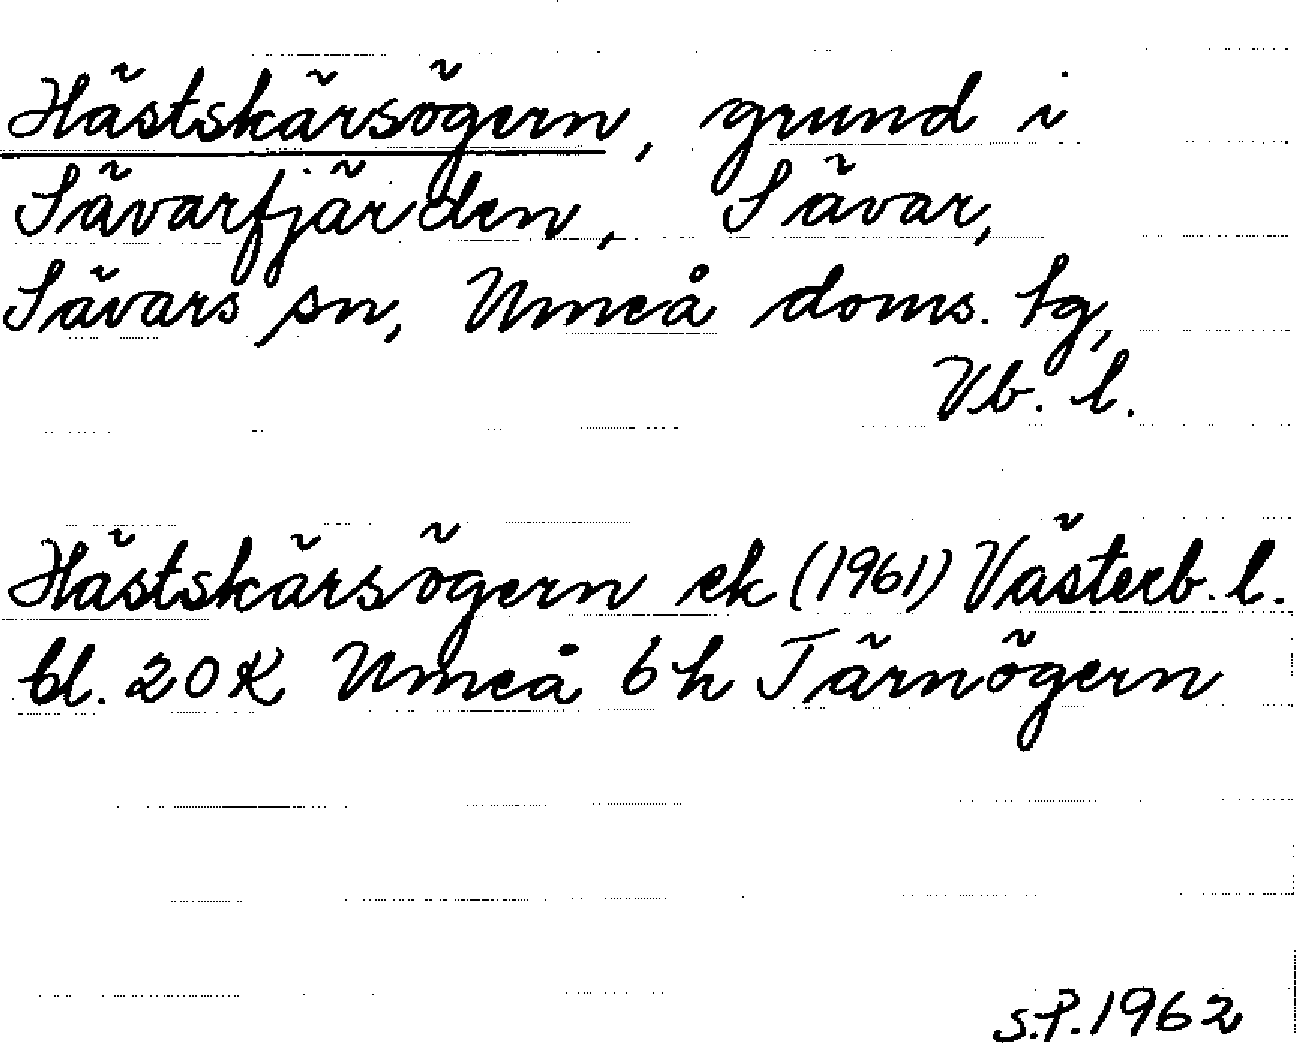 Hästskärsögern, grund i
Sävarfjärden, Sävar,
Sävars sn, Umeå doms. tg,
Vb. l.
Hästskärsögern ek (1961) Västerb. l.
bl. 20 K Umeå 6 h Tärnögern
S.P. 1962